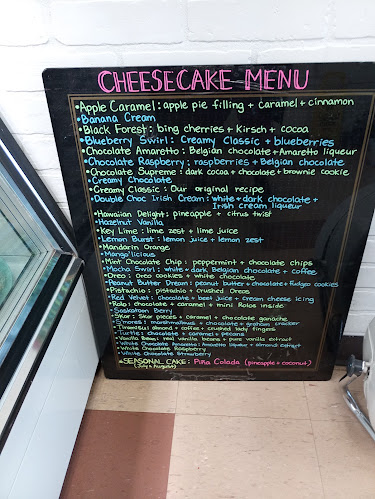 CHEESECAKE MENU
•Apple Caramel: apple pie filling + caramel + cinnamon
•Banana Cream
•Black Forest: bing cherries + Kirsch + cocoa
•Blueberry Swirl: Creamy Classic + blueberries
•Chocolate Amaretto: Belgian chocolate + Amaretto liqueur
•Chocolate Raspberry: raspberries + Belgian chocolate
•Chocolate Supreme: dark cocoa + chocolate + brownie cookie
•Creamy Chocolate
•Creamy Classic: Our original recipe
•Double Choc Irish Cream: white + dark chocolate +
Irish cream liqueur
•Hawaiian Delight: pineapple + citrus twist
•Hazelnut Vanilla
•Key Lime: lime zest + lime juice
•Lemon Burst: lemon juice + lemon zest
•Mandarin Orange
•Mango'licious
•Mint Chocolate Chip: peppermint + chocolate chips
•Mocha Swirl: white + dark Belgian chocolate + coffee
•Oreo: Oreo cookies + white chocolate
•Peanut Butter Dream: peanut butter + chocolate + fudge cookies
•Pistachio: pistachio + crushed Oreos
•Red Velvet: chocolate + beet juice + cream cheese icing
•Rolo: chocolate + caramel + mini Rolos inside
•Saskatoon Berry
•Skor: Skor pieces + caramel + chocolate ganache
•S'mores: marshmallows + chocolate + graham cracker
•Tiramisu: almond + coffee + crushed lady fingers
•Turtle: chocolate + caramel + pecans
•Vanilla Bean: real vanilla beans + pure vanilla extract
•White Chocolate Amaretto: Amaretto liqueur + almond extract
•White Chocolate Raspberry
•White Chocolate Strawberry
•SEASONAL CAKE: Piña Colada (pineapple + coconut)
(July & August)